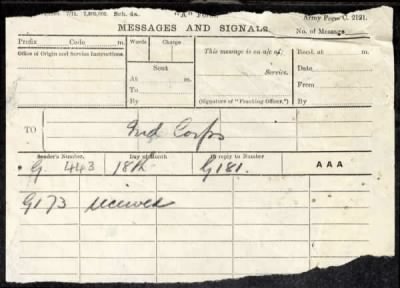 "A" Form.
Army Form C. 2121.
MESSAGES AND SIGNALS.
No. of Message
Prefix Code m.
Office of Origin and Service Instructions.
Words
Charge
Sent
At m.
To
By
This message is on a/c of:
Service.
(Signature of "Franking Officer.")
Recd. at m.
Date
From
By
TO
Ind Corps
Sender's Number.
Day of Month
In reply to Number
AAA
G 443
18th
G181.
G173 received